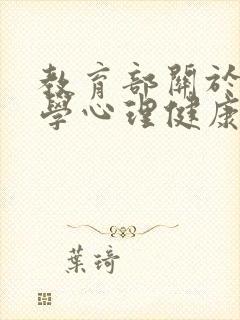 教育部關於
學心理健康
葉琦